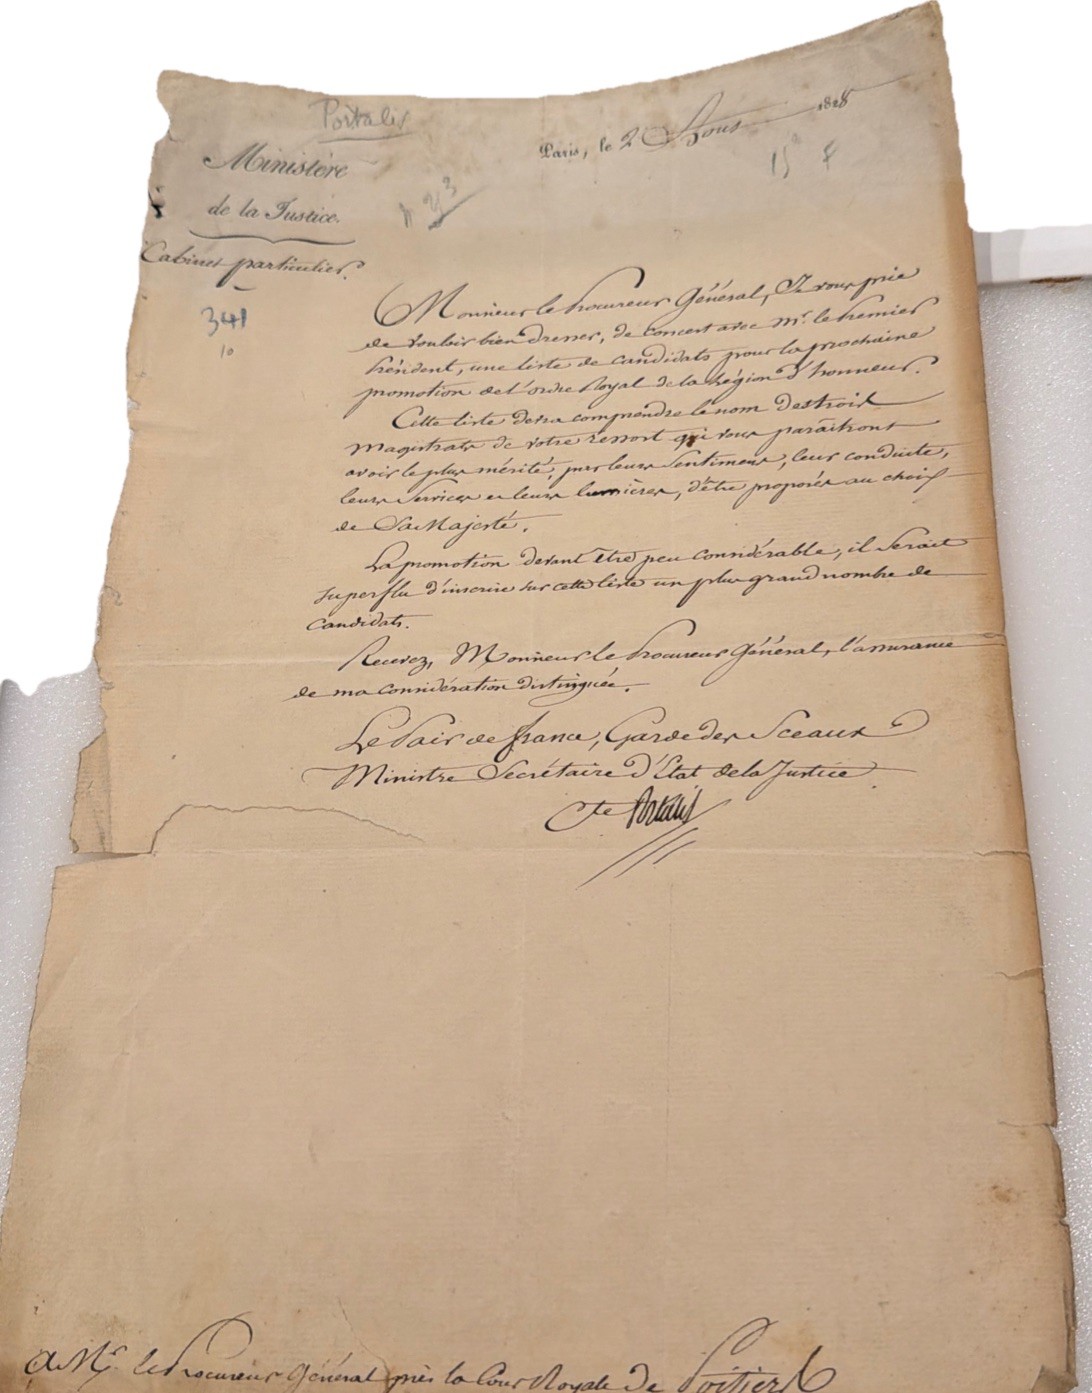 Portalis
Ministère
de la Justice.
Cabinet particulier.
341
10
Paris, le 2 Aous 1828
15 f
Monsieur le Procureur Général, Je vous prie
de vouloir bien dresser, de concert avec Mr. le Premier
Président, une liste de candidats pour la prochaine
promotion de l'ordre Royal de la Légion d'honneur.
Cette liste devra comprendre le nom des trois
magistrats de votre ressort qui vous paraîtront
avoir le plus mérité, par leurs Sentimens, leur conduite,
leurs Services et leurs lumières, d'être proposés au choix
de Sa Majesté.
La promotion devant être peu considérable, il Serait
superflu d'inscrire sur cette liste un plus grand nombre de
candidats.
Recevez, Monsieur le Procureur Général, l'assurance
de ma considération distinguée.
Le Pair de france, Garde des Sceaux
Ministre Secrétaire d'Etat de la Justice.
Cte Portalis
A Mr. le Procureur Général près la Cour Royale de Poitiers